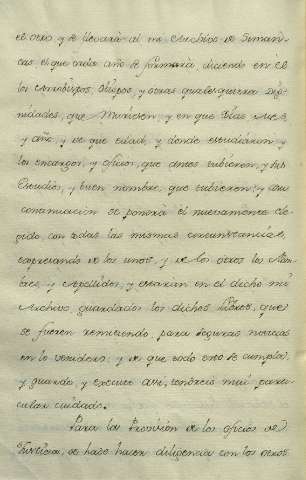 el otro y se llevará al mi Archivo de Siman-
cas el que cada año se formará, diciendo en él
los Arzobispos, Obispos, y otras qualesquiera Dig-
nidades, que Murieron, y en que Dias, Mes,
y año, y de que edad, y donde estudiaron, y
los encargos, y oficios, que antes tubieron, y sus
Estudios, y buen nombre, que tubieron; y a su
continuacion se pondrá el nuevamente ele-
gido, con todas las mismas circunstancias,
expresando de los unos, y de los otros los Nom-
bres, y Apellidos, y estarán en el dicho mi
Archivo, guardados los dichos Libros, que
se fueren remitiendo para seguras noticias
en lo venidero: y de que todo esto se cumpla,
y guarde, y execute asi, tendreis mui parti-
cular cuidado.
Para la Provision de los oficios de
Justicia, se hade hacer diligencia con los otros